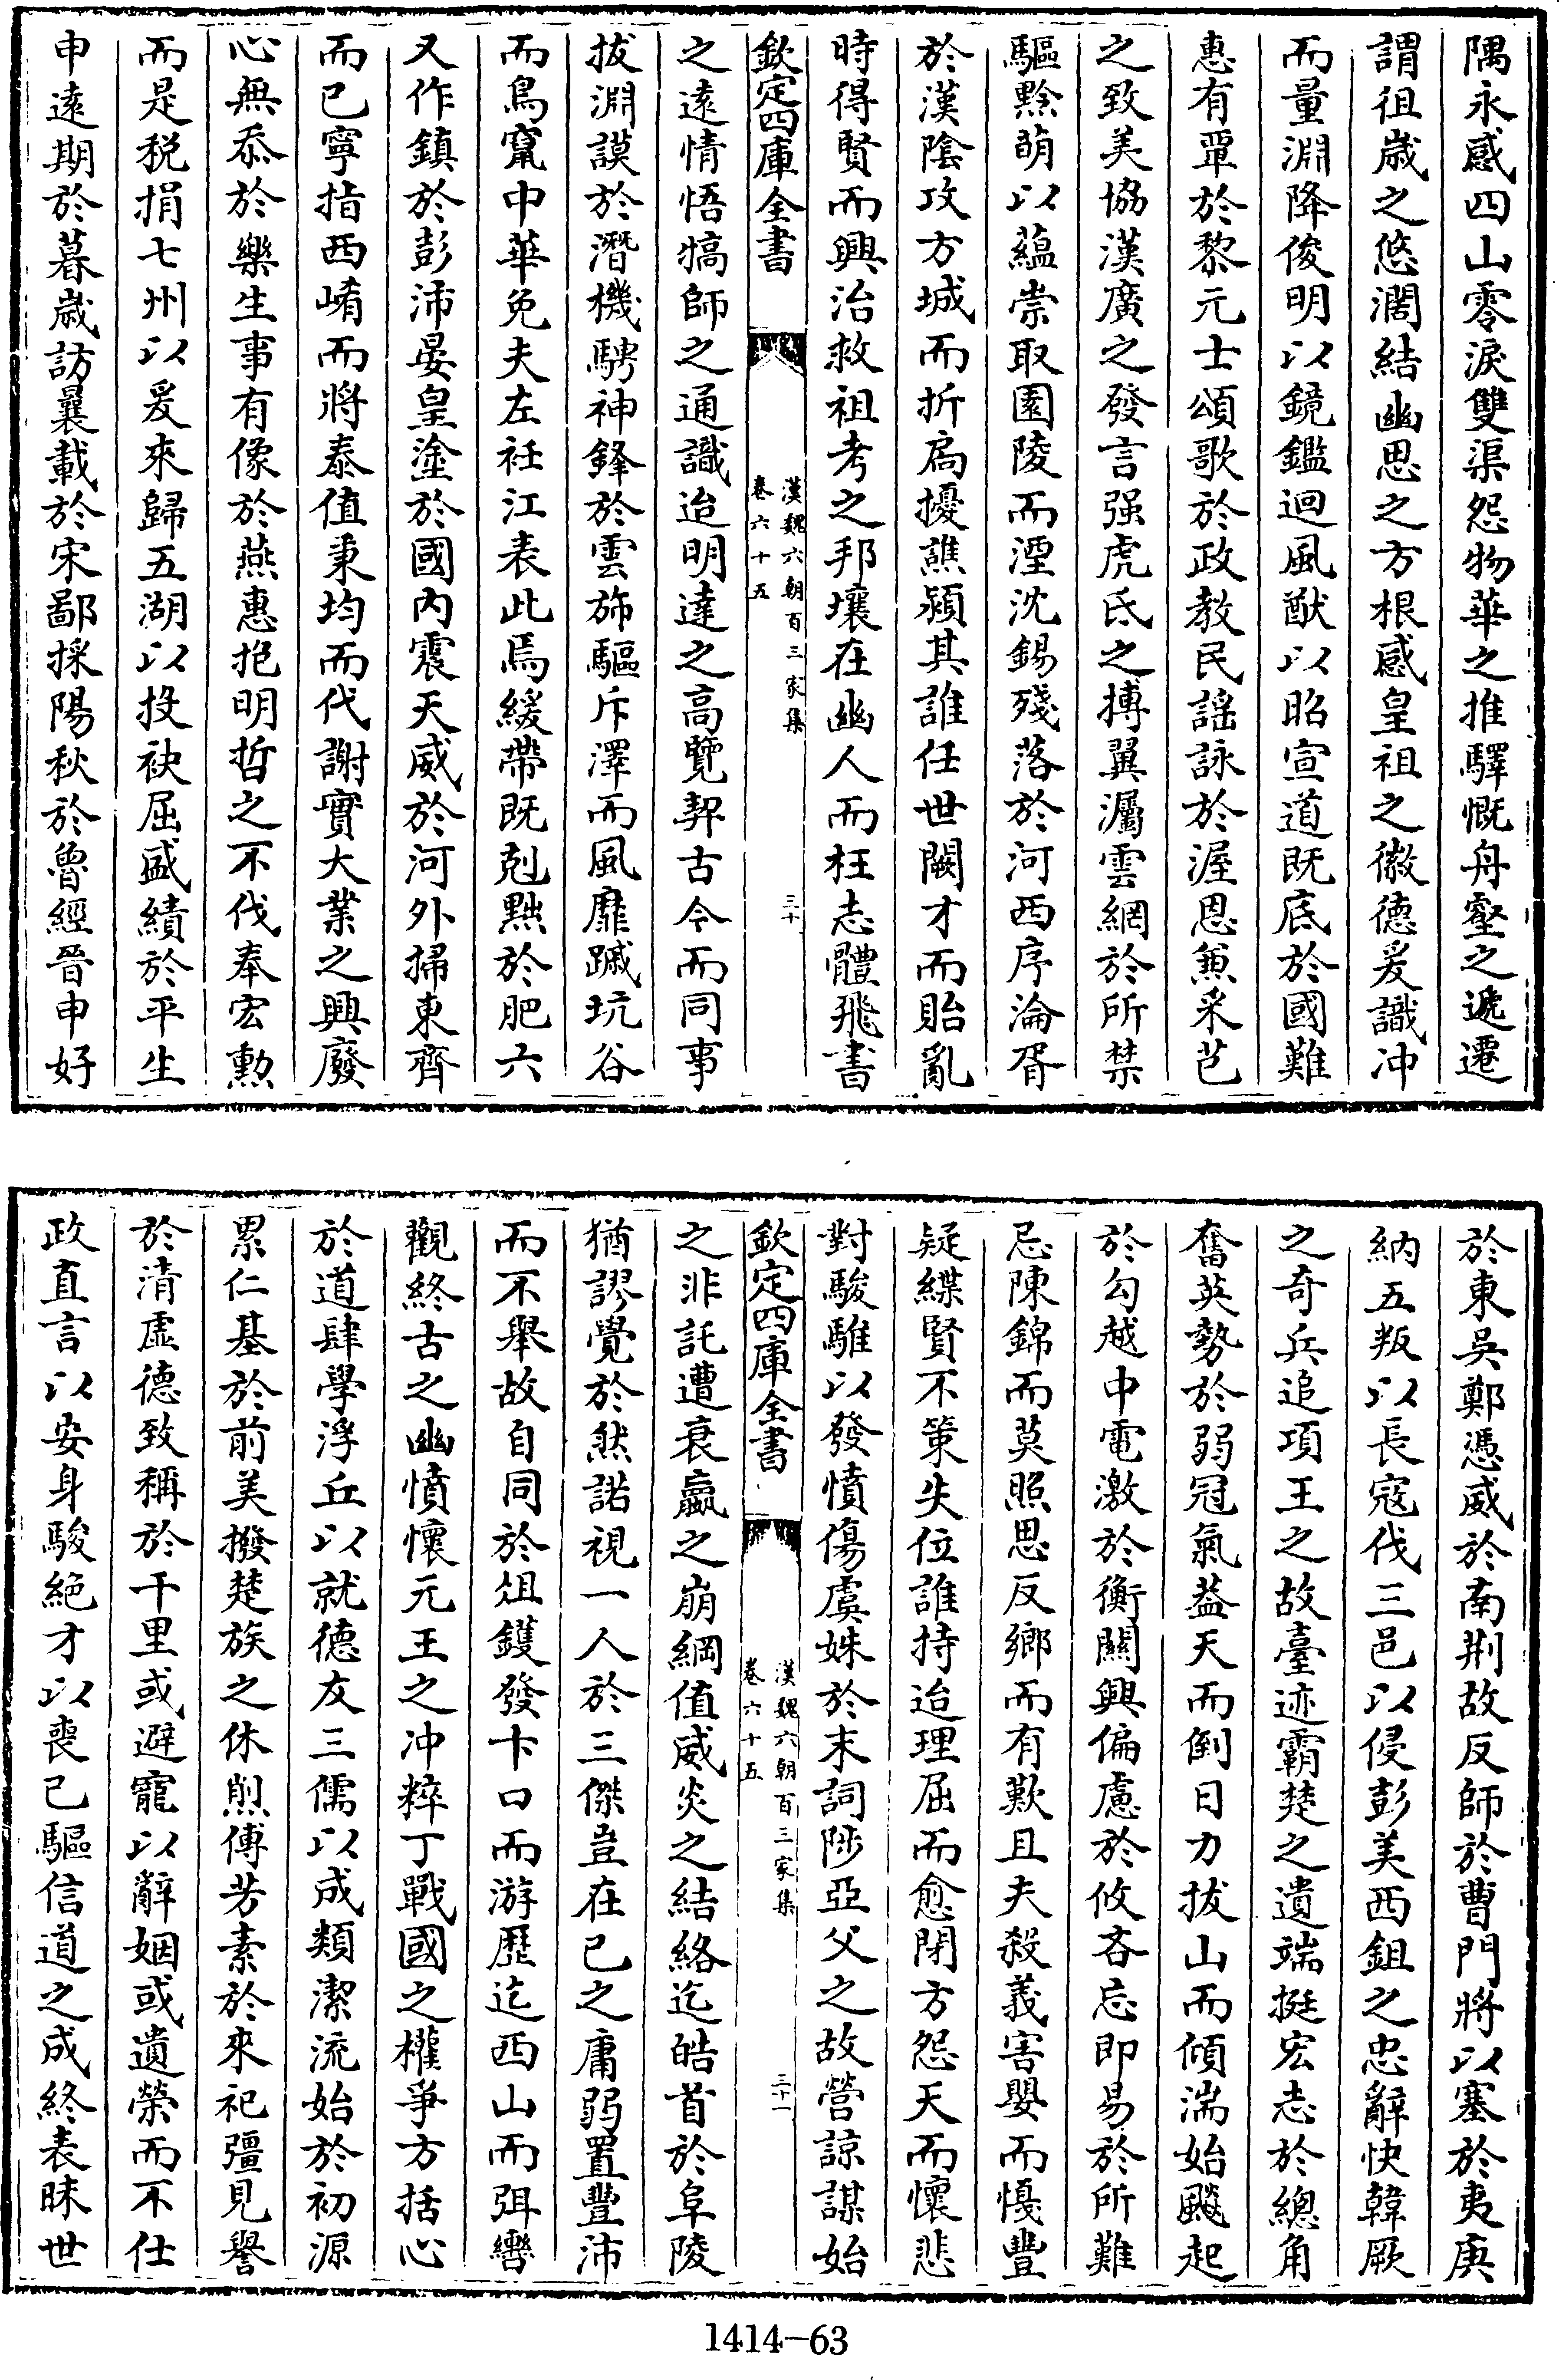 隅永感四山零淚雙渠怨物華之推驛慨舟壑之遞遷
謂徂歲之悠濶結幽思之方根感皇祖之徽德爰識冲
而量淵降俊明以鏡鑑迴風猷以昭宣道既底於國難
惠有覃於黎元士頌歌於政教民謡詠於渥恩兼釆芑
之致美協漢廣之發言强虎氐之搏翼灟雲網於所禁
驅黔萌以蘊崇取園陵而湮沈錫殘落於河西序淪胥
於漢陰攻方城而折扃擾譙潁其誰任世闕才而貽亂
時得賢而興治救祖考之邦壤在幽人而枉志體飛書
欽定四庫全書
漢魏六朝百三家集
卷六十五
三十
之遠情悟犒師之通識迨明達之高覽契古今而同事
拔淵謨於潛機騁神鋒於雲斾驅斥澤而風靡蹴坑谷
而鳥竄中華免夫左衽江表此焉緩帶既剋黜於肥六
又作鎮於彭沛晏皇塗於國内震天威於河外掃東齊
而已寧指西崤而將泰值秉均而代謝實大業之興廢
心無忝於樂生事有像於燕惠抱明哲之不伐奉宏勲
而是税捐七州以爰來歸五湖以投袂屈盛績於平生
申遠期於暮歲訪曩載於宋鄙採陽秋於魯經晉申好
於東吳鄭憑威於南荆故反師於曹門將以塞於夷庚
納五叛以長寇伐三邑以侵彭美西鉏之忠辭快韓厥
之奇兵追項王之故臺迹霸楚之遺端挺宏志於總角
奮英勢於弱冠氣葢天而倒日力拔山而傾湍始飈起
於勾越中電激於衡關興偏慮於攸吝忘即易於所難
忌陳錦而莫照思反鄉而有歎且夫殺義害嬰而慢豐
疑緤賢不策失位誰持迨理屈而愈閉方怨天而懷悲
對駿騅以發憤傷虞姝於末詞陟亞父之故營諒謀始
欽定四庫全書
漢魏六朝百三家集
卷六十五
三十一
之非託遭衰嬴之崩綱值威炎之結絡迄皓首於阜陵
猶謬覺於然諾視一人於三傑豈在已之庸弱置豐沛
而不舉故自同於俎鑊發卞口而游歷迄西山而弭轡
觀終古之幽憤懷元王之冲粹丁戰國之權爭方括心
於道肆學浮丘以就德友三儒以成類潔流始於初源
累仁基於前美撥楚族之休烈傅芳素於來祀彊見譽
於清虛德致稱於千里或避寵以辭姻或遺榮而不仕
政直言以安身駿絶才以喪已驅信道之成終表昧世
1414-63